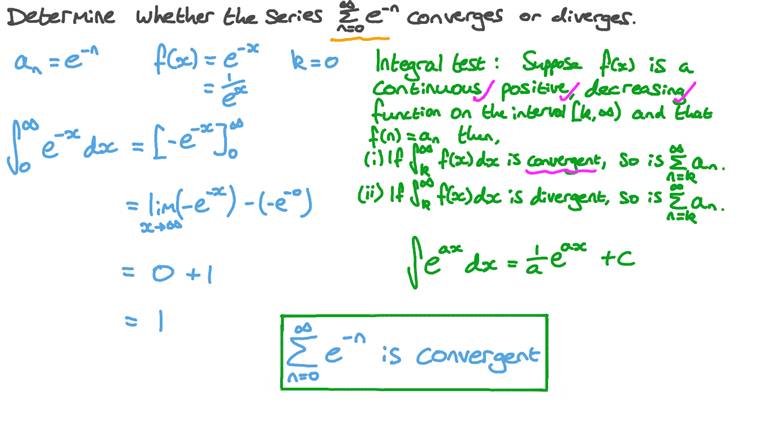 Determine whether the Series ∑_{n=0}^{∞} e^{-n} converges or diverges.
a_n = e^{-n} f(x) = e^{-x} k = 0
= 1/e^x
∫_0^∞ e^{-x} dx = [-e^{-x}]_0^∞
= lim_{x→∞} (-e^{-x}) - (-e^{-0})
= 0 + 1
= 1
Integral test : Suppose f(x) is a
continuous ✓ positive, ✓ decreasing ✓
function on the interval [k,∞) and that
f(n) = a_n then,
(i) If ∫_k^∞ f(x) dx is convergent, so is ∑_{n=k}^{∞} a_n.
(ii) If ∫_k^∞ f(x) dx is divergent, so is ∑_{n=k}^{∞} a_n.
∫ e^{ax} dx = 1/a e^{ax} + C
∑_{n=0}^{∞} e^{-n} is convergent